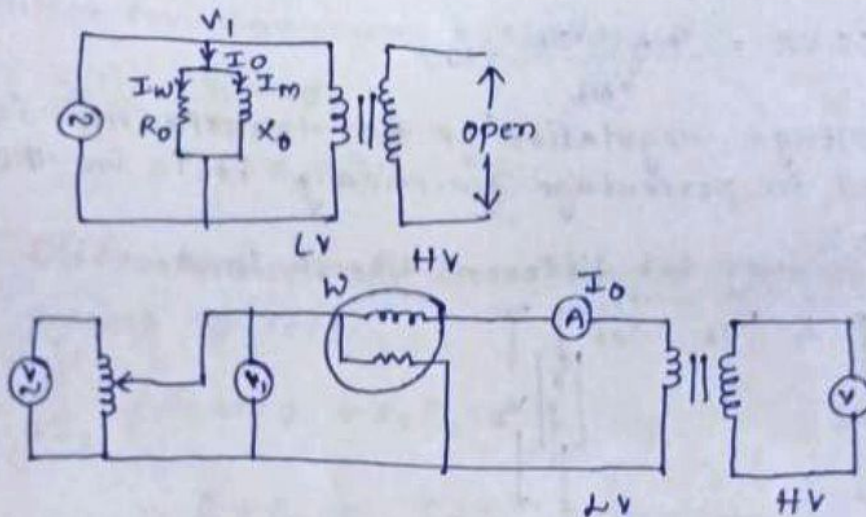 V1
I0
Iw Im
R0 X0
open
LV HV
W I0
A
V1
V
LV HV